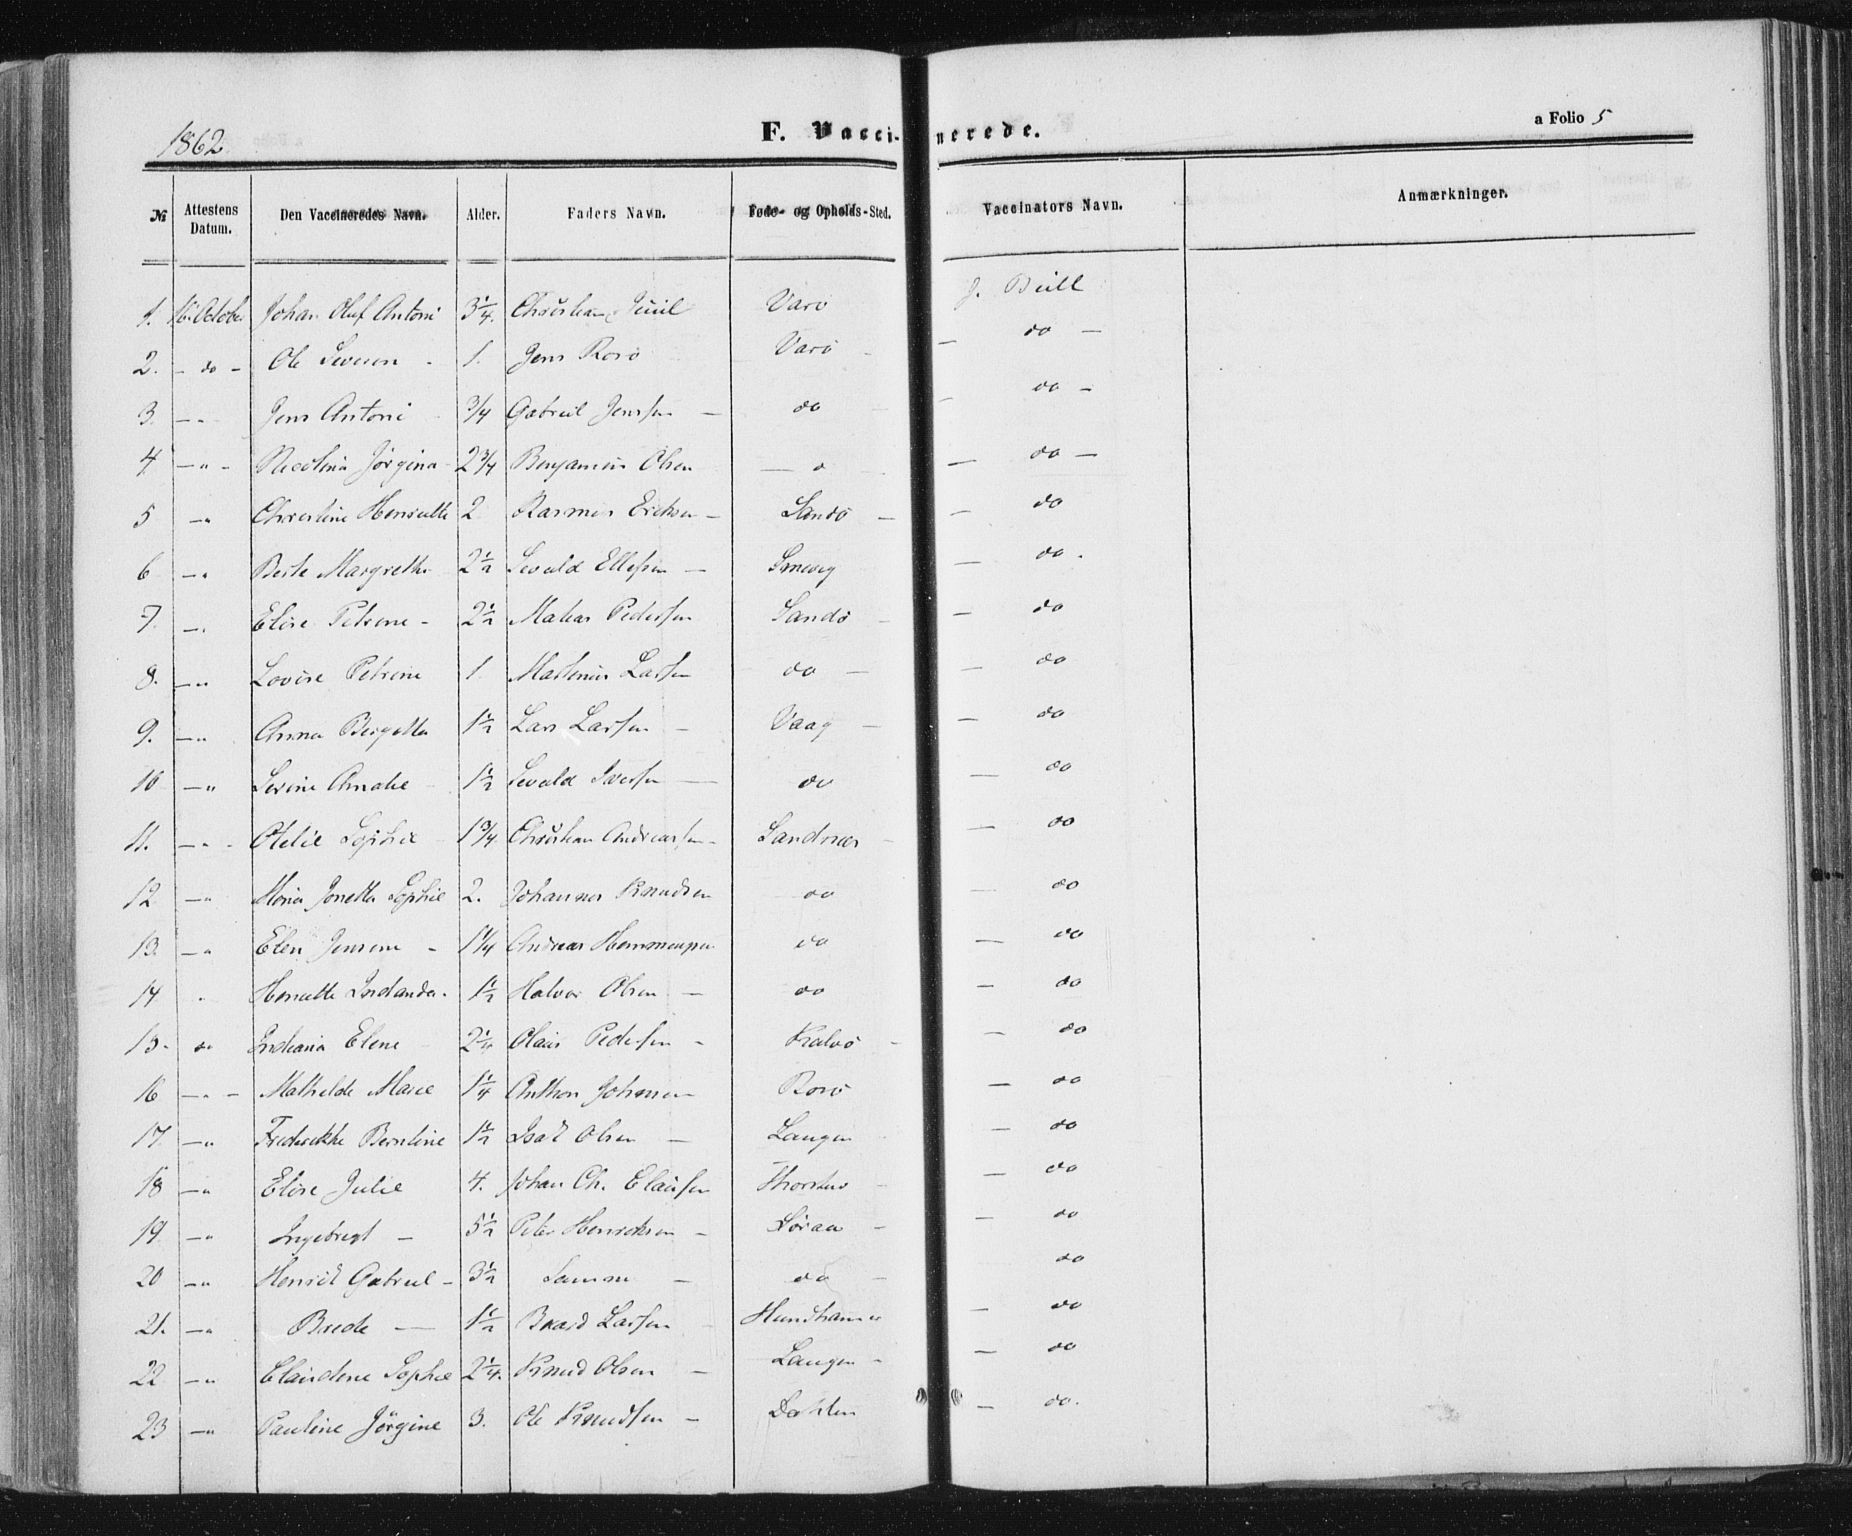 1862.
F. Vacci-nerede.
a Folio 5
№ Attestens Datum. Den Vaccineredes Navn. Alder. Faders Navn. Føde- og Opholds-Sted. Vaccinators Navn. Anmærkninger.
1. 16. October Johan Oluf Antoni 3 1/4. Christian Juul Varø J. Bull
2. - do - Ole Severin - 1. Jens Rosø Varø - - do -
3. - " Jens Antoni 3/4 Gabriel Jenssen - do - - do -
4 - " - Nicolina Jørgina 2 3/4 Benjamin Olsen - " - - do -
5 - " Christine Henriette 2 Rasmus Eriksen - Sandø - - do
6 - " Berte Margrethe 2 1/2 Sevald Ellefsen - Smevig - do.
7. - " Elise Petrine - 2 1/2 Matias Pedersen Sandø - - do
8. - " Lovise Petrine 1. Martinus Larsen do - - do
9. - " Anna Bergitta 1 1/2 Lars Larsen - Vaag - - do
10 - " Serine Amalie 1 1/2 Sevald Iversen - do - do
11. - " - Otelie Sophie 1 3/4 Christian Andreassen - Sandnes - - do
12 - " Maria Jonetta Sophie 2. Johannes Knudsen do - do
13. - " Elen Jensine - 1 1/4 Andreas do - do
14 " Henriette Indianda - 1 1/2 Halvor Olsen - do - do
15. do Indiania Elene 2 1/4 Olaus Pedersen - Kalvø - - do
16 - " - Mathilde Marie 1 1/4 Anthon Johnsen Rosø - do
17. - " Frederikke Berntine 1 1/2 Isak Olsen - Langen - do
18 - " Elise Julie 4. Johan Ch. Clausen - - do
19. - " Ingebregt - 5 1/2 Peter Henriksen - Søraa - - do
20 - " Henrik Gabriel - 3 1/2 Samme - do - do
21. - " Brede - 1 1/2 Baard Larsen Hundhammer - do
22 - " Claudine Sophie 2 1/4. Knud Olsen - Langen - - do
23 - " Pauline Jörgine 3. Ole Knudsen - Dahlen - do.